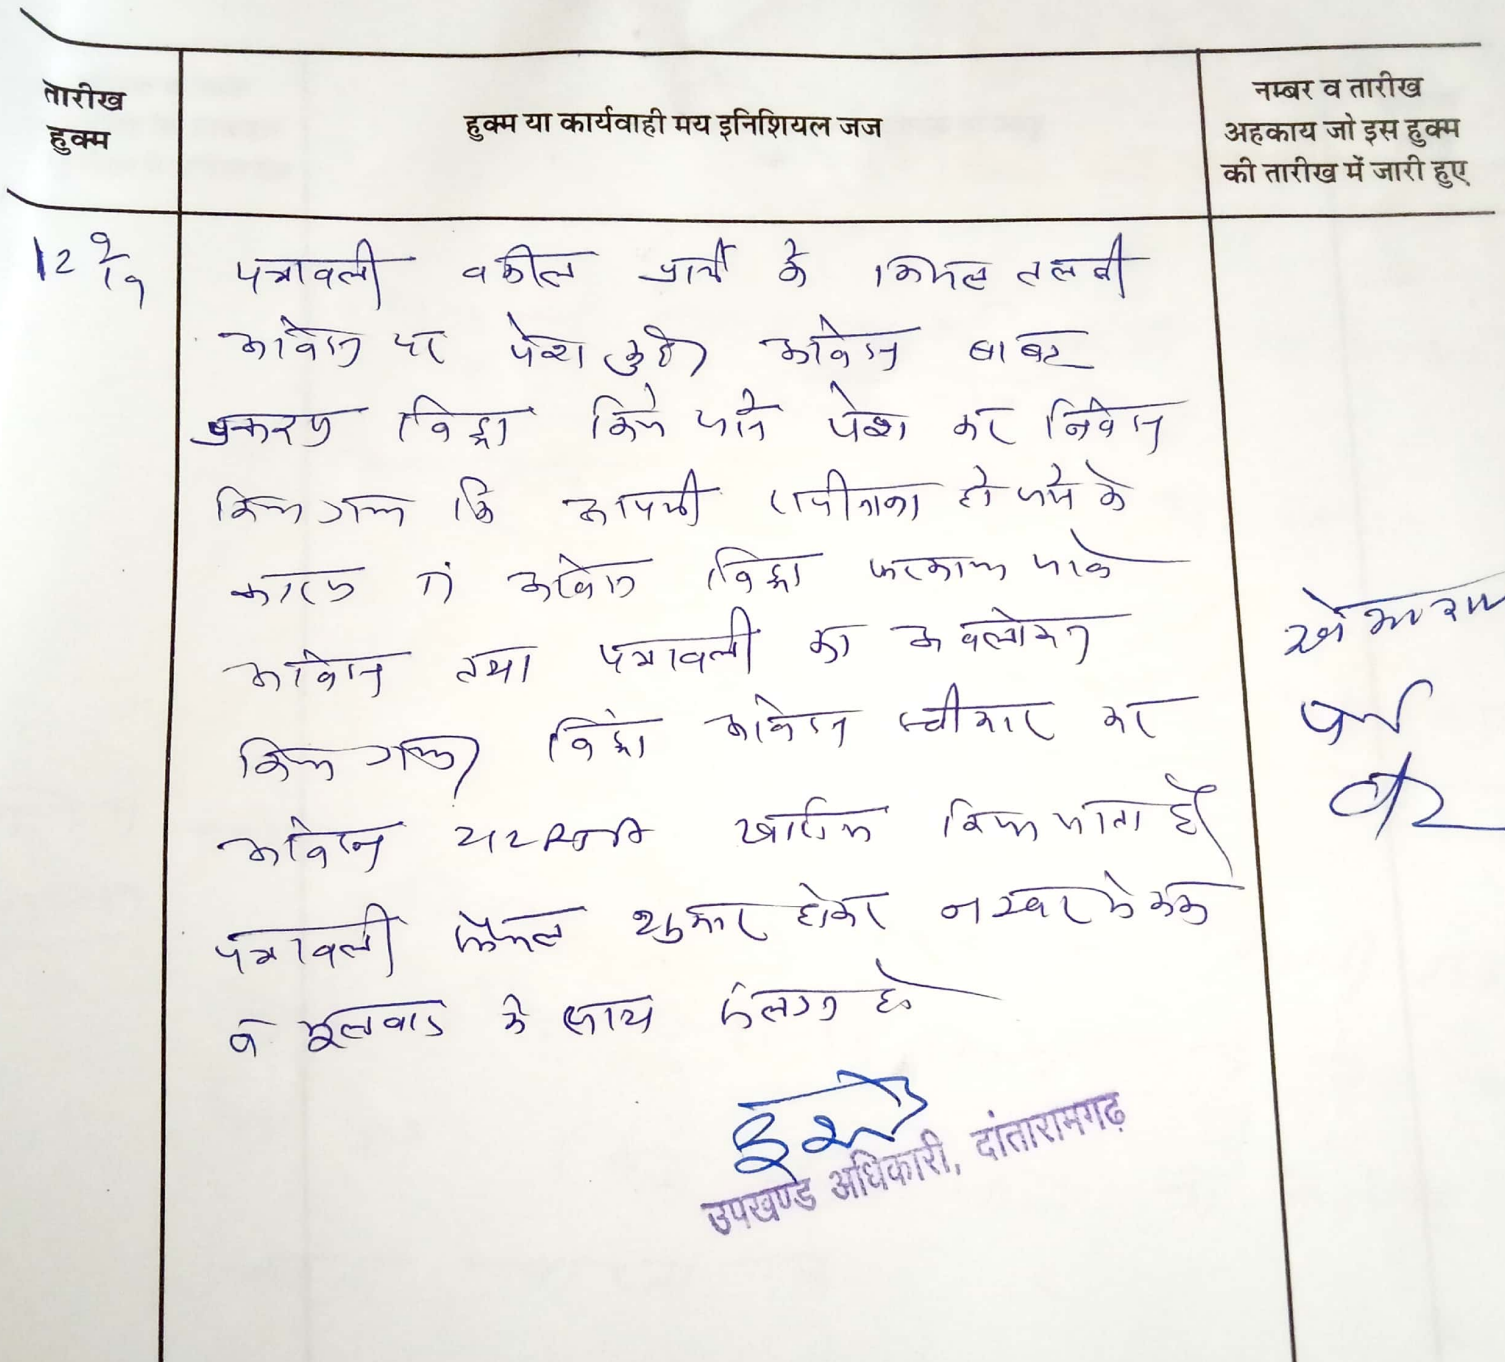 तारीख
हुक्म
हुक्म या कार्यवाही मय इनिशियल जज
नम्बर व तारीख
अहकाय जो इस हुक्म
की तारीख में जारी हुए
12 9/19
पत्रावली वकील प्रार्थी के मिसल तलबी
आवेदन पर पेश हुई। आवेदन बाबत
प्रकरण विड्रा किये जाने पेश कर निवेदन
किया गया कि आपसी राजीनामा हो जाने के
कारण आवेदन विड्रा फरमाया जावे
आवेदन तथा पत्रावली का अवलोकन
किया गया। विड्रो आवेदन स्वीकार कर
आवेदन खारिज किया जाता है।
पत्रावली फैसल शुमार होकर नम्बर से कम
व मूलवाद के साथ संलग्न हो
उपखण्ड अधिकारी, दांतारामगढ़